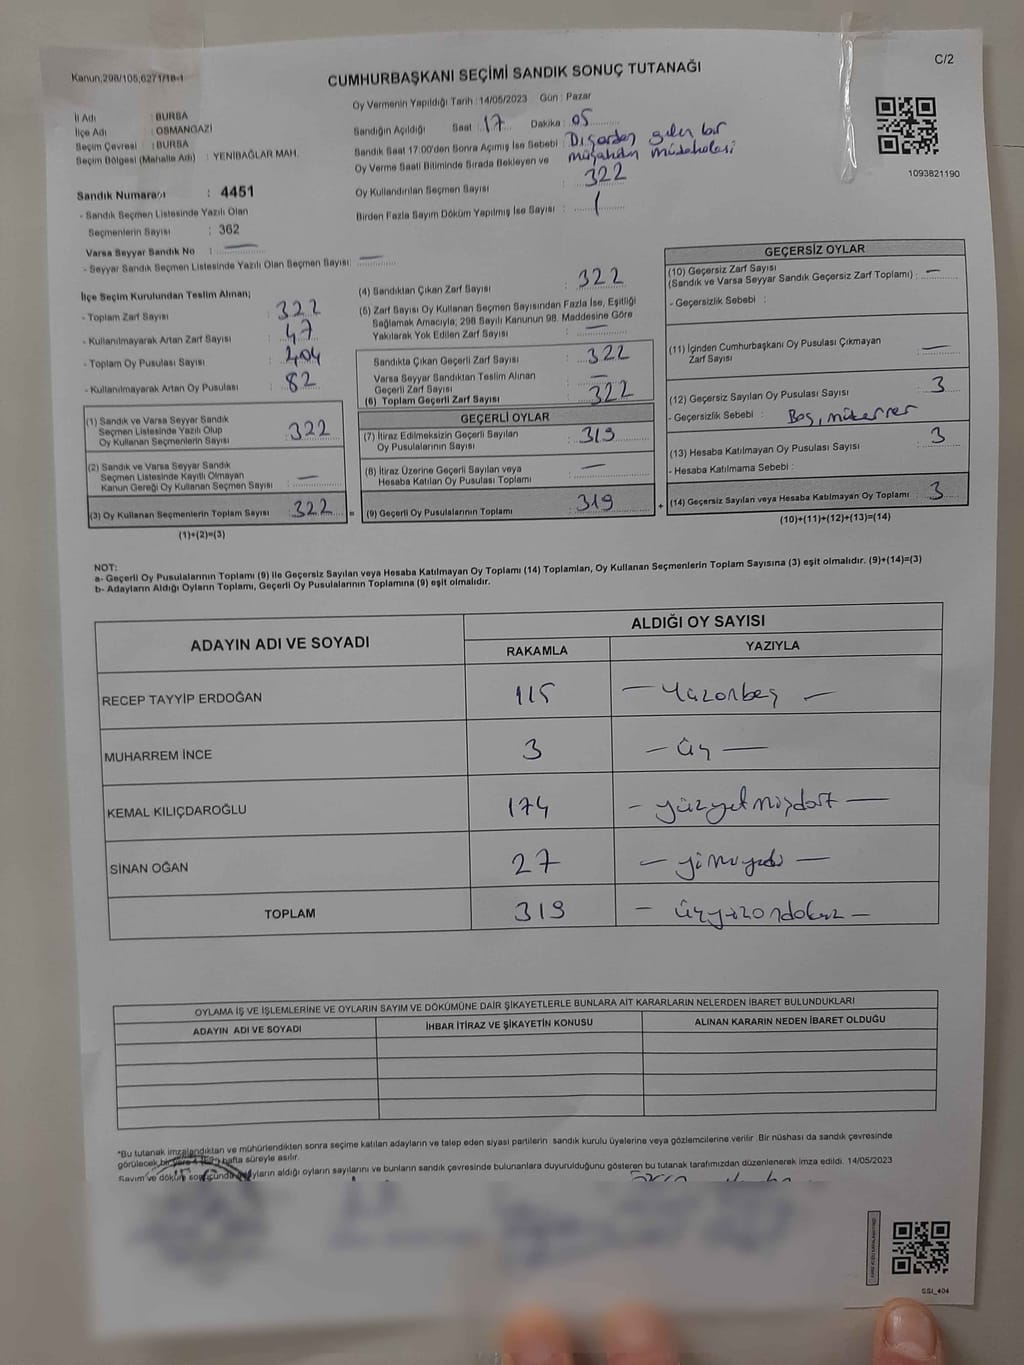 Kanun,298/105,6271/18-1
CUMHURBAŞKANI SEÇİMİ SANDIK SONUÇ TUTANAĞI
C/2
İl Adı : BURSA
İlçe Adı : OSMANGAZİ
Seçim Çevresi : BURSA
Seçim Bölgesi (Mahalle Adı) : YENİBAĞLAR MAH.
Sandık Numarası : 4451
- Sandık Seçmen Listesinde Yazılı Olan
Seçmenlerin Sayısı : 362
Varsa Seyyar Sandık No : —
- Seyyar Sandık Seçmen Listesinde Yazılı Olan Seçmen Sayısı: —
Oy Vermenin Yapıldığı Tarih : 14/05/2023 Gün : Pazar
Sandığın Açıldığı Saat : 17 Dakika : 05
Sandık Saat 17:00'den Sonra Açımış İse Sebebi : Dışardan gelen bir
Oy Verme Saati Bitiminde Sırada Bekleyen ve müşahidin müdahalesi
Oy Kullandırılan Seçmen Sayısı : 322
Birden Fazla Sayım Döküm Yapılmış İse Sayısı : 1
1093821190
İlçe Seçim Kurulundan Teslim Alınan;
- Toplam Zarf Sayısı : 322
- Kullanılmayarak Artan Zarf Sayısı : 47
- Toplam Oy Pusulası Sayısı : 404
- Kullanılmayarak Artan Oy Pusulası : 82
(1) Sandık ve Varsa Seyyar Sandık
Seçmen Listesinde Yazılı Olup
Oy Kullanan Seçmenlerin Sayısı : 322
(2) Sandık ve Varsa Seyyar Sandık
Seçmen Listesinde Kayıtlı Olmayan
Kanun Gereği Oy Kullanan Seçmen Sayısı : —
(3) Oy Kullanan Seçmenlerin Toplam Sayısı : 322 =
(1)+(2)=(3)
(4) Sandıktan Çıkan Zarf Sayısı : 322
(5) Zarf Sayısı Oy Kullanan Seçmen Sayısından Fazla İse, Eşitliği
Sağlamak Amacıyla; 298 Sayılı Kanunun 98. Maddesine Göre
Yakılarak Yok Edilen Zarf Sayısı : —
Sandıkta Çıkan Geçerli Zarf Sayısı : 322
Varsa Seyyar Sandıktan Teslim Alınan
Geçerli Zarf Sayısı : —
(6) Toplam Geçerli Zarf Sayısı : 322
GEÇERLİ OYLAR
(7) İtiraz Edilmeksizin Geçerli Sayılan
Oy Pusulalarının Sayısı : 319
(8) İtiraz Üzerine Geçerli Sayılan veya
Hesaba Katılan Oy Pusulası Toplamı : —
(9) Geçerli Oy Pusulalarının Toplamı : 319 +
GEÇERSİZ OYLAR
(10) Geçersiz Zarf Sayısı
(Sandık ve Varsa Seyyar Sandık Geçersiz Zarf Toplamı) : —
- Geçersizlik Sebebi :
(11) İçinden Cumhurbaşkanı Oy Pusulası Çıkmayan
Zarf Sayısı : —
(12) Geçersiz Sayılan Oy Pusulası Sayısı : 3
- Geçersizlik Sebebi : Boş, mükerrer
(13) Hesaba Katılmayan Oy Pusulası Sayısı : 3
- Hesaba Katılmama Sebebi :
(14) Geçersiz Sayılan veya Hesaba Katılmayan Oy Toplamı : 3
(10)+(11)+(12)+(13)=(14)
NOT:
a- Geçerli Oy Pusulalarının Toplamı (9) ile Geçersiz Sayılan veya Hesaba Katılmayan Oy Toplamı (14) Toplamları, Oy Kullanan Seçmenlerin Toplam Sayısına (3) eşit olmalıdır. (9)+(14)=(3)
b- Adayların Aldığı Oyların Toplamı, Geçerli Oy Pusulalarının Toplamına (9) eşit olmalıdır.
ADAYIN ADI VE SOYADI ALDIĞI OY SAYISI
RAKAMLA YAZIYLA
RECEP TAYYİP ERDOĞAN 115 — Yüzonbeş —
MUHARREM İNCE 3 — Üç —
KEMAL KILIÇDAROĞLU 174 — yüzyetmişdört —
SİNAN OĞAN 27 — yirmiyedi —
TOPLAM 319 — üçyüzondokuz —
OYLAMA İŞ VE İŞLEMLERİNE VE OYLARIN SAYIM VE DÖKÜMÜNE DAİR ŞİKAYETLERLE BUNLARA AİT KARARLARIN NELERDEN İBARET BULUNDUKLARI
ADAYIN ADI VE SOYADI İHBAR İTİRAZ VE ŞİKAYETİN KONUSU ALINAN KARARIN NEDEN İBARET OLDUĞU
*Bu tutanak imzalandıktan ve mühürlendikten sonra seçime katılan adayların ve talep eden siyasi partilerin sandık kurulu üyelerine veya gözlemcilerine verilir. Bir nüshası da sandık çevresinde
görülecek bir hafta süreyle asılır.
Sayım ve döküm aldığı oyların sayılarını ve bunların sandık çevresinde bulunanlara duyurulduğunu gösteren bu tutanak tarafımızdan düzenlenerek imza edildi. 14/05/2023
SSİ_404